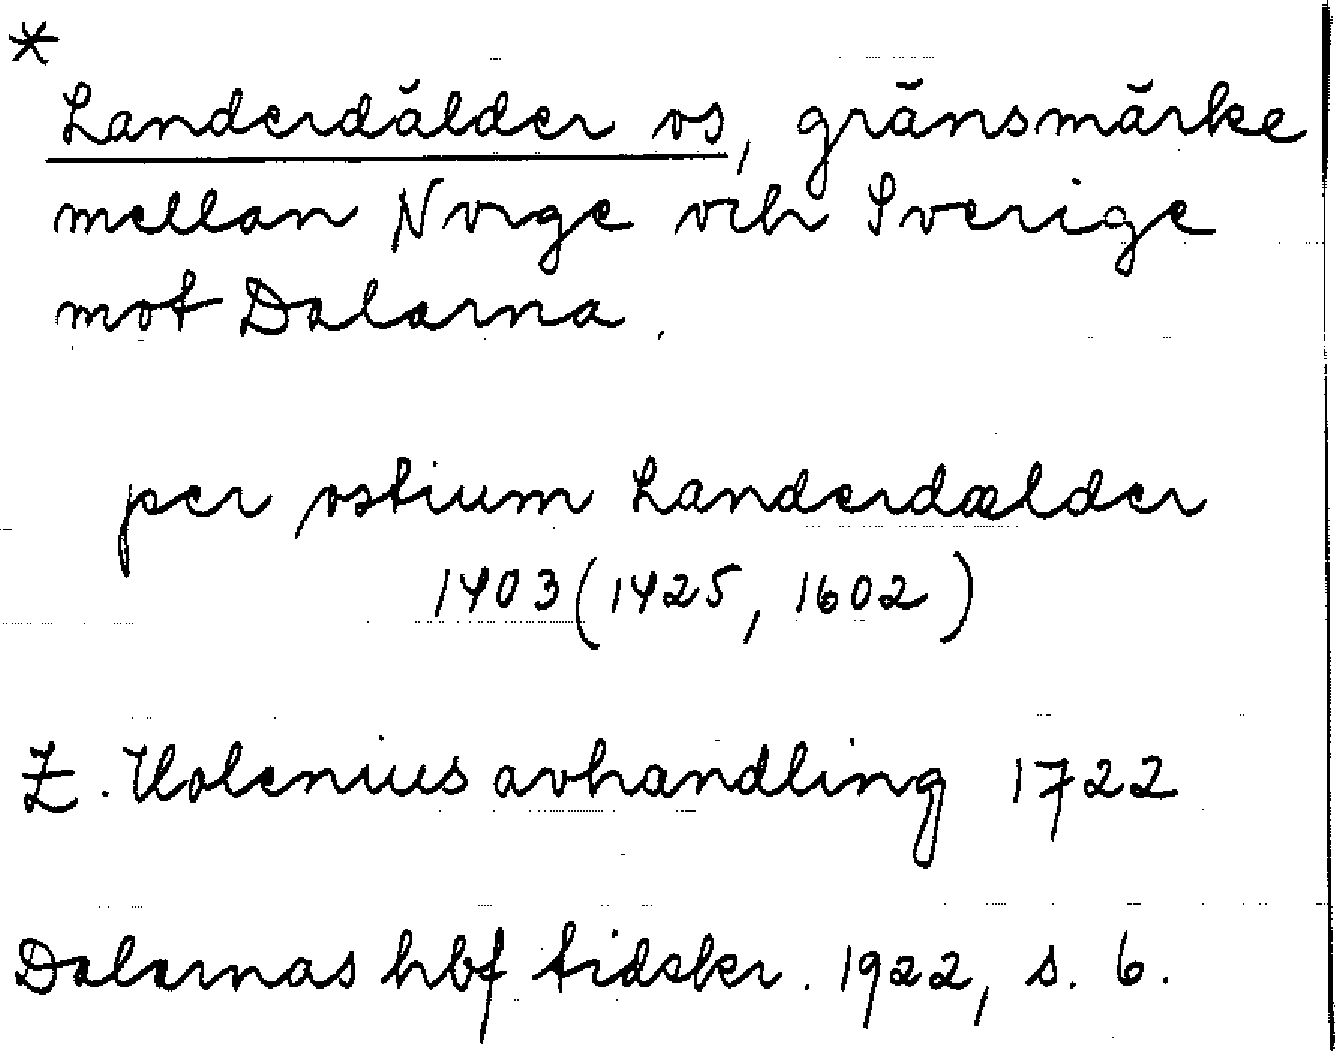 *
Landerdälder os, gränsmärke
mellan Norge och Sverige
mot Dalarna.
per ostium Landerdælder
1403 (1425, 1602)
Z. Holenius avhandling 1722
Dalarnas hbf tidskr. 1922, s. 6.